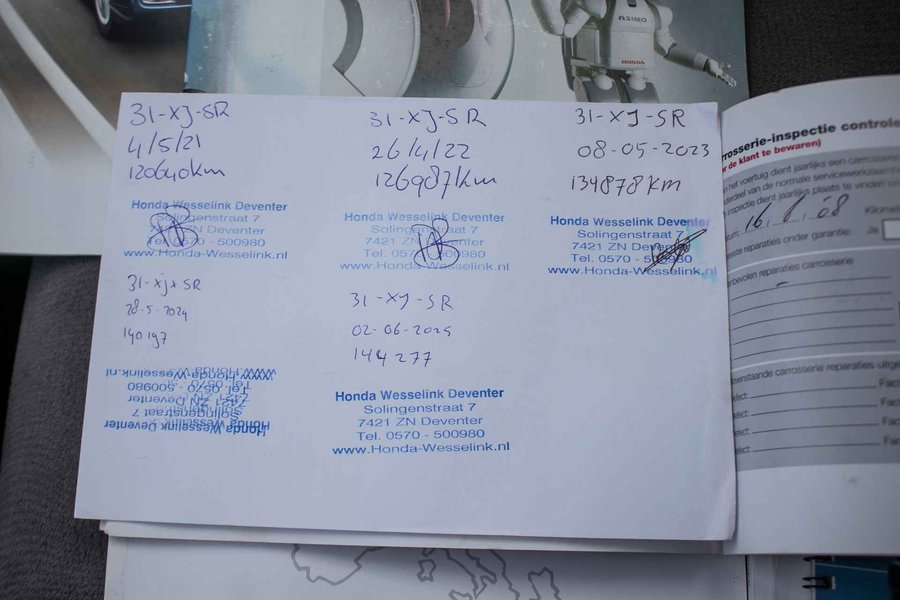 ASIMO
HONDA
31-XJ-SR
4/5/21
120640km
Honda Wesselink Deventer
Solingenstraat 7
7421 ZN Deventer
Tel. 0570 - 500980
www.Honda-Wesselink.nl
31-XJ-SR
26/4/22
126987km
Honda Wesselink Deventer
Solingenstraat 7
7421 ZN Deventer
Tel. 0570 - 500980
www.Honda-Wesselink.nl
31-XJ-SR
08-05-2023
134878km
Honda Wesselink Deventer
Solingenstraat 7
7421 ZN Deventer
Tel. 0570 - 500980
www.Honda-Wesselink.nl
31-XJ-SR
28-5-2024
140197
Honda Wesselink Deventer
Solingenstraat 7
7421 ZN Deventer
Tel. 0570 - 500980
www.Honda-Wesselink.nl
31-XJ-SR
02-06-2025
144277
Honda Wesselink Deventer
Solingenstraat 7
7421 ZN Deventer
Tel. 0570 - 500980
www.Honda-Wesselink.nl
rosserie-inspectie controle
de klant te bewaren)
het voertuig dient jaarlijks een carrosserie
derdeel van de normale servicewerkzaam
inspectie dient jaarlijks plaats te vinden
Kilome
reparaties onder garantie: Ja
reparaties carrosserie
staande carrosserie reparaties uitge
efect: Fact
efect: Fact
efect: Fact